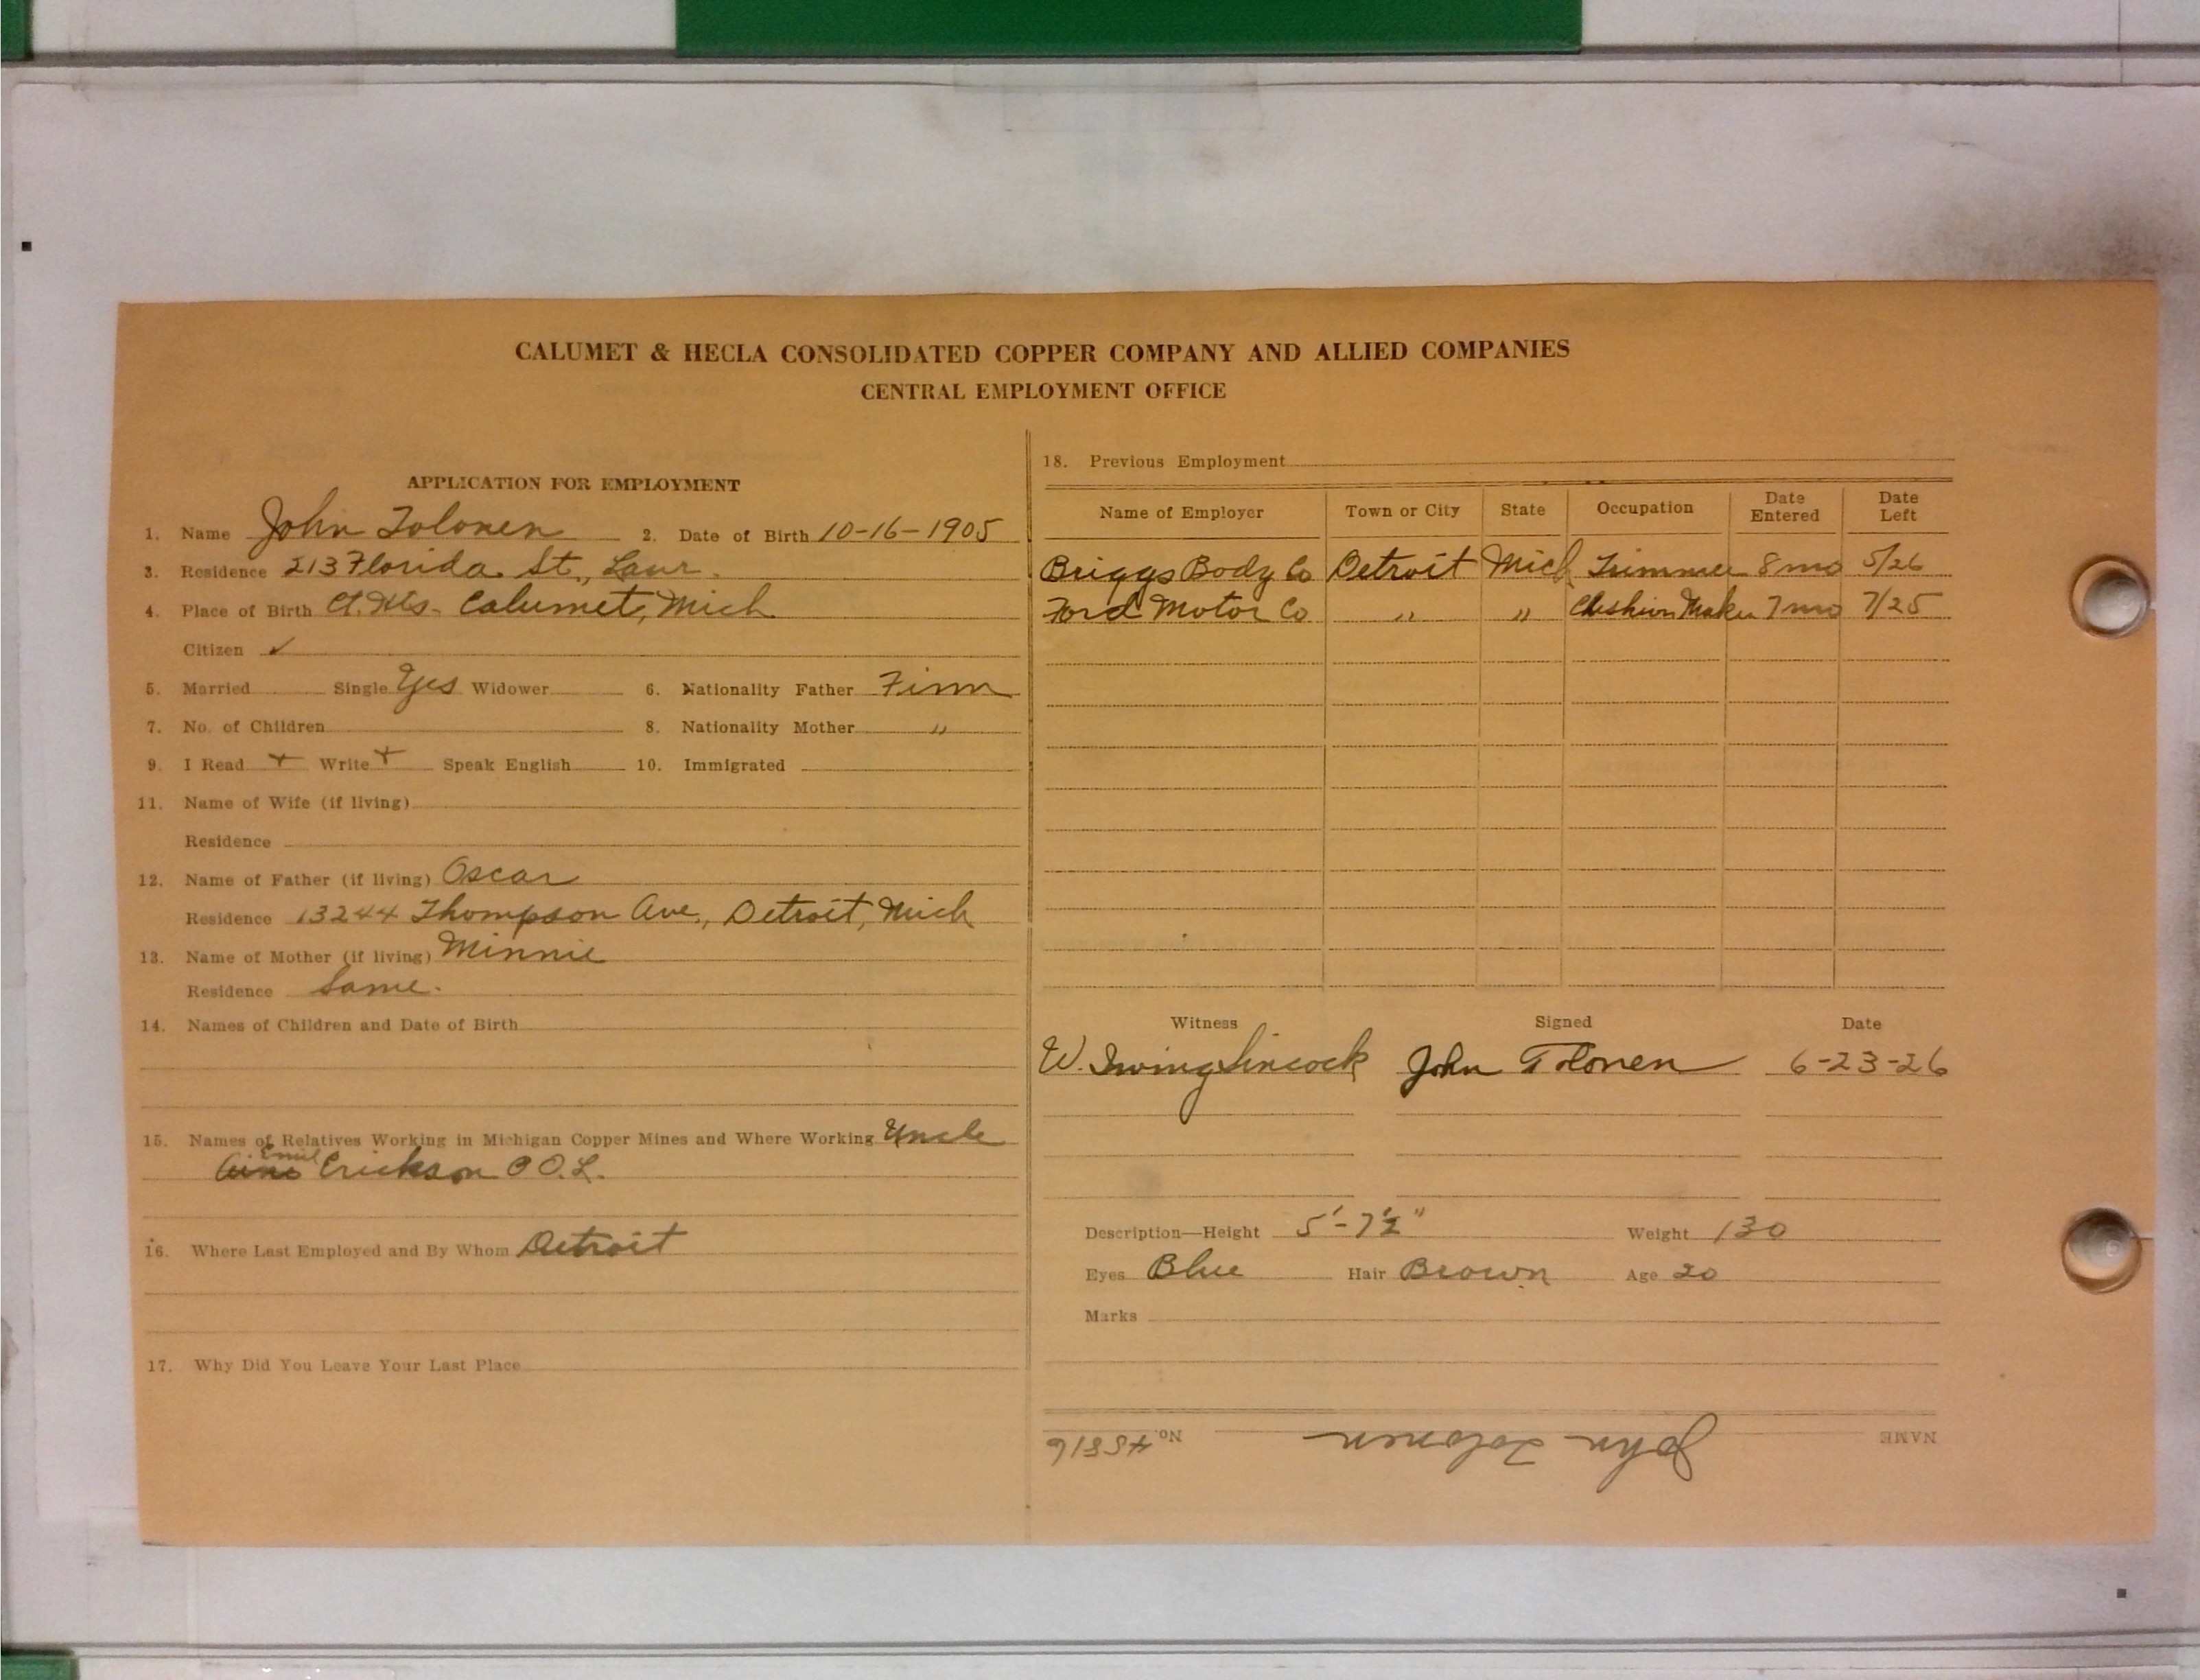 CALUMET & HECLA CONSOLIDATED COPPER COMPANY AND ALLIED COMPANIES
CENTRAL EMPLOYMENT OFFICE
APPLICATION FOR EMPLOYMENT
1. Name John Tolonen 2. Date of Birth 10-16-1905
3. Residence 213 Florida St., Laur.
4. Place of Birth Calumet, Mich
Citizen ✓
5. Married Single Yes Widower 6. Nationality Father Finn
7. No. of Children 8. Nationality Mother "
9. I Read + Write + Speak English 10. Immigrated
11. Name of Wife (if living)
Residence
12. Name of Father (if living) Oscar
Residence 13244 Thompson Ave., Detroit, Mich
13. Name of Mother (if living) Minnie
Residence Same.
14. Names of Children and Date of Birth
15. Names of Relatives Working in Michigan Copper Mines and Where Working Uncle
Emil
Erickson
16. Where Last Employed and By Whom Detroit
17. Why Did You Leave Your Last Place
18. Previous Employment
Name of Employer Town or City State Occupation Date Entered Date Left
Briggs Body Co Detroit Mich Trimmer 8 mo 5/26
Ford Motor Co " " Cushion Maker 7 mo 7/25
Witness Signed Date
W. Irving Sincock John Tolonen 6-23-26
Description—Height 5'-7½" Weight 130
Eyes Blue Hair Brown Age 20
Marks
NAME John Tolonen No. 45816